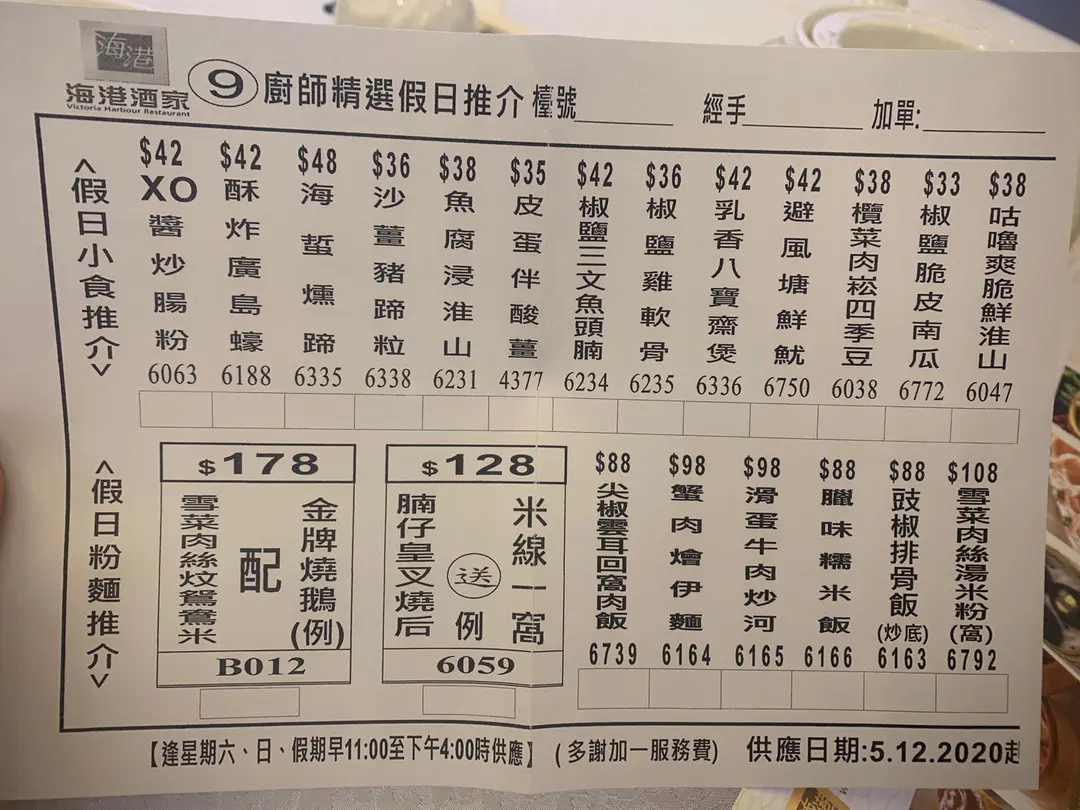 海港
海港酒家
Victoria Harbour Restaurant
9 廚師精選假日推介 檯號 經手 加單:
<假日小食推介>
$42 XO醬炒腸粉 6063
$42 酥炸廣島蠔 6188
$48 海蜇燻蹄 6335
$36 沙薑豬蹄粒 6338
$38 魚腐浸淮山 6231
$35 皮蛋伴酸薑 4377
$42 椒鹽三文魚頭腩 6234
$36 椒鹽雞軟骨 6235
$42 乳香八寶齋煲 6336
$42 避風塘鮮魷 6750
$38 欖菜肉崧四季豆 6038
$33 椒鹽脆皮南瓜 6772
$38 咕嚕爽脆鮮淮山 6047
<假日粉麵推介>
$178
雪菜肉絲炆鴛鴦米
配
金牌燒鵝(例)
B012
$128
腩仔皇叉燒后
送
例
米線一窩
6059
$88 尖椒雲耳回窩肉飯 6739
$98 蟹肉燴伊麵 6164
$98 滑蛋牛肉炒河 6165
$88 臘味糯米飯 6166
$88 豉椒排骨飯(炒底) 6163
$108 雪菜肉絲湯米粉(窩) 6792
【逢星期六、日、假期早11:00至下午4:00時供應】 (多謝加一服務費) 供應日期:5.12.2020起